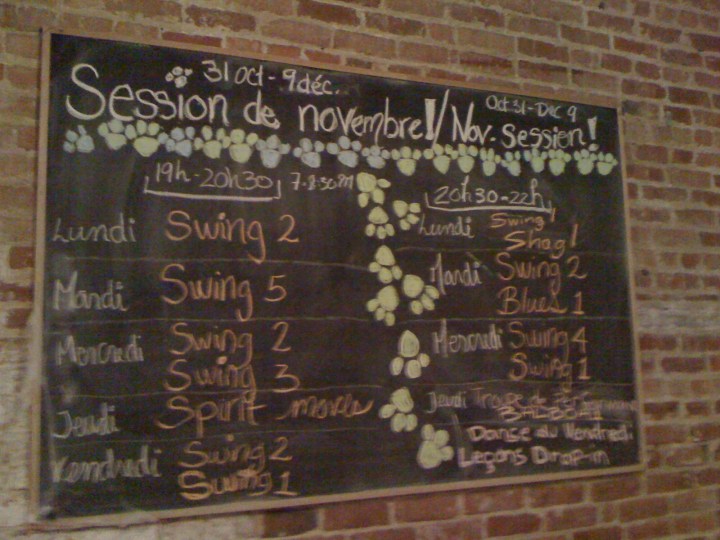 31 oct - 9 déc.
Oct 31 - Dec 9
Session de novembre! / Nov. Session!
19h - 20h30 7-8:30PM
Lundi Swing 2
Mardi Swing 5
Mercredi Swing 2
Swing 3
Jeudi Spirit moves
Vendredi Swing 2
Swing 1
20h30 - 22h
Lundi Swing 1
Shag 1
Mardi Swing 2
Blues 1
Mercredi Swing 4
Swing 1
Jeudi Troupe de
Danse du Vendredi
Leçons Drop-in